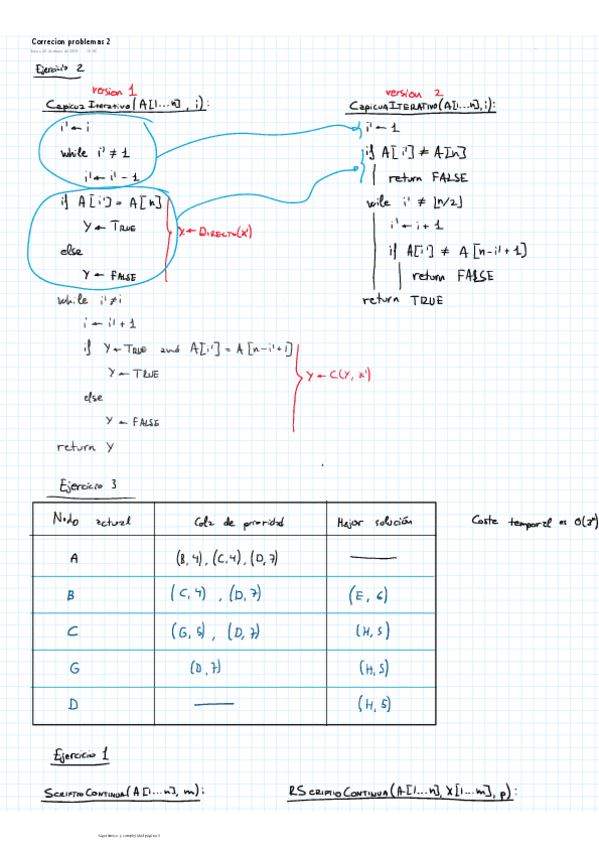 Correcion problemas 2
Ejercicio 2
version 1
CapicuaIterativo(A[1...n], i):
i' ← i
while i' ≠ 1
i' ← i' - 1
if A[i'] = A[n]
Y ← TRUE
else
Y ← FALSE
X ← DIRECTO(X)
while i' ≠ i
i ← i' + 1
if Y ← TRUE and A[i'] = A[n-i'+1]
Y ← TRUE
else
Y ← FALSE
Y ← C(Y, x')
return Y
version 2
CapicuaITERATIVO(A[1...n],i):
i' ← 1
if A[i'] ≠ A[n]
return FALSE
wile i' ≠ ⌊n/2⌋
i' ← i + 1
if A[i'] ≠ A[n-i'+1]
return FALSE
return TRUE
Ejercicio 3
Nodo actual Cola de prioridad Mejor solución
A (B,4), (C,4), (D,7)
B (C,4), (D,7) (E,6)
C (G,5), (D,7) (H,5)
G (D,7) (H,5)
D (H,5)
Coste temporal es
Ejercicio 1
SCRIPTIOCONTINUA(A[1...n], m):
RSCRIPTIOCONTINUA(A[1...n], X[1...m], p):